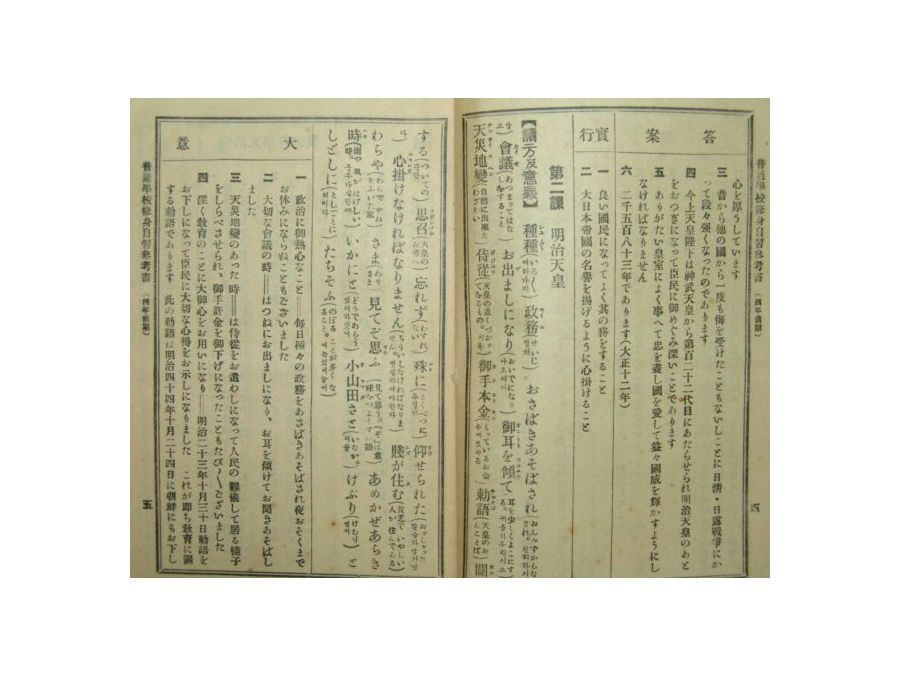 答案
心を厚うしています
三 昔から他の國から一度も侮を受けたこともないしことに日淸・日露戰爭にか
って段々强くなったのであります
四 今上天皇陛下は神武天皇から第百二十二代目にあたらせられ明治天皇のあと
をおつぎになって臣民に御めぐみ深いことであります
五 ありがたい皇室によく事へて忠を盡し國を愛して益々國威を輝かすようにし
なければなりません
六 二千五百八十三年であります(大正十二年)
實行
一 良い國民になってよく其の務をすること
二 大日本帝國の名譽を揚げるように心掛けること
第二課 明治天皇
【讀方及意義】 種種(いろ〱) 政務(せいじ) おさばきあそばされ
會議(あつまってはな) お出ましになり(おいでになり) 御耳を傾て
天災地變(自然に出來たわざわい) 侍從 御手本金 勅語(天皇のおことば) 關
四
普通學校修身自習參考書 (四年前期)
する(ついての) 思召(天皇の) 忘れず(わすれ) 殊に(とくべつに) 仰せられた(おっしゃった)
心掛けなければなりません 賤が住む(人が住んでゐる)
わらや(をふいた家) さま 見てぞ思ふ あめかぜあらき
時 いかにと(どうであらう) 小山田さと(いなか) けぶり(けむり) と
しごしに(としごとに) たちそふ
大意
一 政治に御熱心なこと——每日種々の政務をあさばきあそばされ夜おそくまで
お休みにならぬこともございました
二 大切な會議の時——はつねにお出ましになり、お耳を傾けてお聞きあそばし
ました
三 天災地變のあった時——は侍從をお遣わしになって人民の難儀して居る樣子
をしらべさせられ、御手許金を御下げになったこともたび〱ございました
四 深く敎育のことに大御心をお用いになり——明治二十三年十月三十日勅語を
お下しになって臣民に大切な心得をお示しになりました これが卽ち敎育に關
する勅語であります 此の勅語は明治四十四年十月二十四日に朝鮮にもお下し
普通學校修身自習參考書 (四年前期)
五